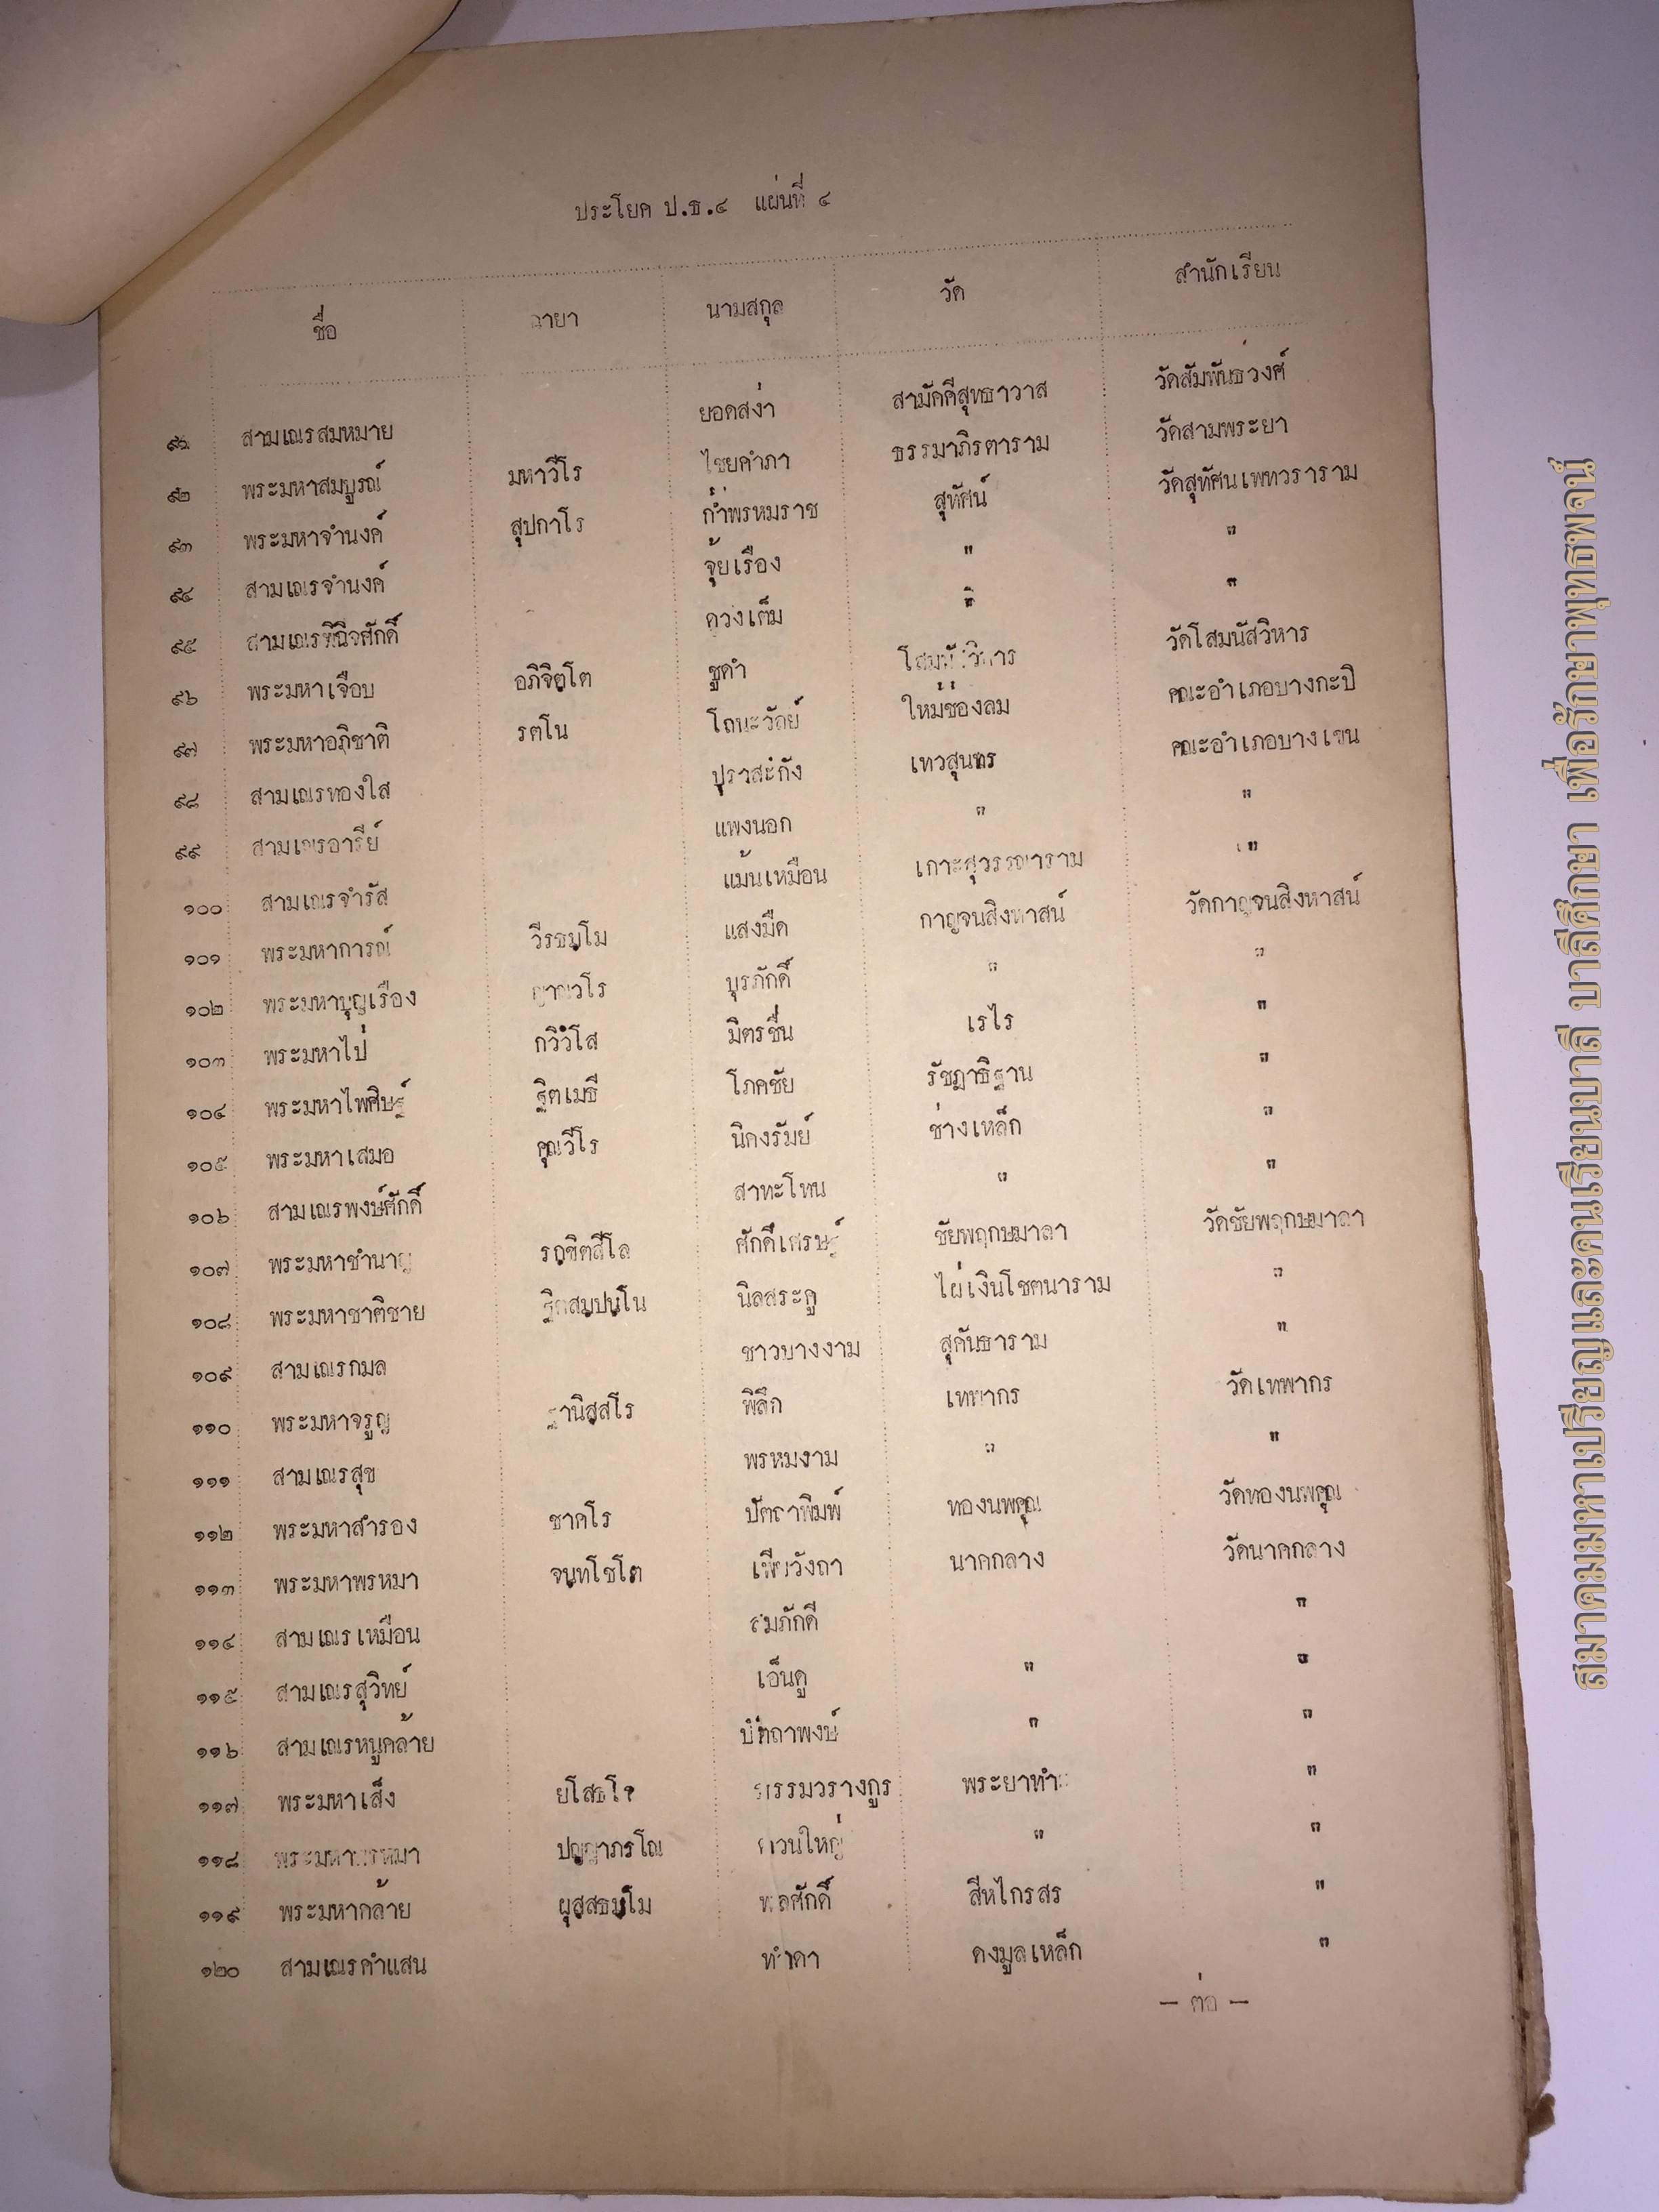 ประโยค ป.ธ.๔ แผ่นที่ ๔
ชื่อ ฉายา นามสกุล วัด สำนักเรียน
๙๑ สามเณรสมหมาย ยอดสง่า สามัคคีสุทธาวาส วัดสัมพันธวงศ์
๙๒ พระมหาสมบูรณ์ มหาวีโร ไชยคำภา ธรรมาภิรตาราม วัดสามพระยา
๙๓ พระมหาจำนงค์ สุปกาโร ก่ำพรหมราช สุทัศน์ วัดสุทัศนเพทวราราม
๙๔ สามเณรจำนงค์ จุ้ยเรือง " "
๙๕ สามเณรพินิจศักดิ์ ดวงเต็ม " "
๙๖ พระมหาเจือบ อภิจิตฺโต ชูดำ โสมนัสวิหาร วัดโสมนัสวิหาร
๙๗ พระมหาอภิชาติ รตโน โถนะวัถย์ ใหม่ช่องลม คณะอำเภอบางกะปิ
๙๘ สามเณรทองใส ปุราสะกัง เทวสุนทร คณะอำเภอบางเขน
๙๙ สามเณรอารีย์ แพงนอก " "
๑๐๐ สามเณรจำรัส แม้นเหมือน เกาะสุวรรณาราม "
๑๐๑ พระมหาการณ์ วีรธมฺโม แสงมืด กาญจนสิงหาสน์ วัดกาญจนสิงหาสน์
๑๐๒ พระมหาบุญเรือง ญาณวโร บุรภักดิ์ " "
๑๐๓ พระมหาไป่ กวิวํโส มิตรชื่น เรไร "
๑๐๔ พระมหาไพศิษฐ์ ฐิตเมธี โภคชัย รัชฎาธิฐาน "
๑๐๕ พระมหาเสมอ คุณวีโร นิคงรัมย์ ช่างเหล็ก "
๑๐๖ สามเณรพงษ์ศักดิ์ สาทะโทน " "
๑๐๗ พระมหาชำนาญ รกฺขิตสีโล ศักดิ์เศรษฐ์ ชัยพฤกษมาลา วัดชัยพฤกษมาลา
๑๐๘ พระมหาชาติชาย ฐิตสมฺปนฺโน นิลสระคู ไผ่เงินโชตนาราม "
๑๐๙ สามเณรกมล ชาวบางงาม สุคันธาราม "
๑๑๐ พระมหาจรูญ ฐานิสฺสโร พิลึก เทพากร วัดเทพากร
๑๑๑ สามเณรสุข พรหมงาม " "
๑๑๒ พระมหาสำรอง ชาคโร ปัตถาพิมพ์ ทองนพคุณ วัดทองนพคุณ
๑๑๓ พระมหาพรหมา จนฺทโชโต เพียวังถา นาคกลาง วัดนาคกลาง
๑๑๔ สามเณรเหมือน สมภักดี "
๑๑๕ สามเณรสุวิทย์ เอ็นดู " "
๑๑๖ สามเณรหนูคล้าย ปัตถาพงษ์ " "
๑๑๗ พระมหาเส็ง ยโสธโร ธรรมวรางกูร พระยาทำ "
๑๑๘ พระมหาพรหมา ปญฺญาภรโณ ควนใหญ่ " "
๑๑๙ พระมหากล้าย ผุสฺสธมฺโม พลศักดิ์ สีหไกรสร "
๑๒๐ สามเณรคำแสน ทำดา ดงมูลเหล็ก "
– ต่อ –
สมาคมมหาเปรียญและคนเรียนบาลี บาลีศึกษา เพื่อรักษาพุทธพจน์